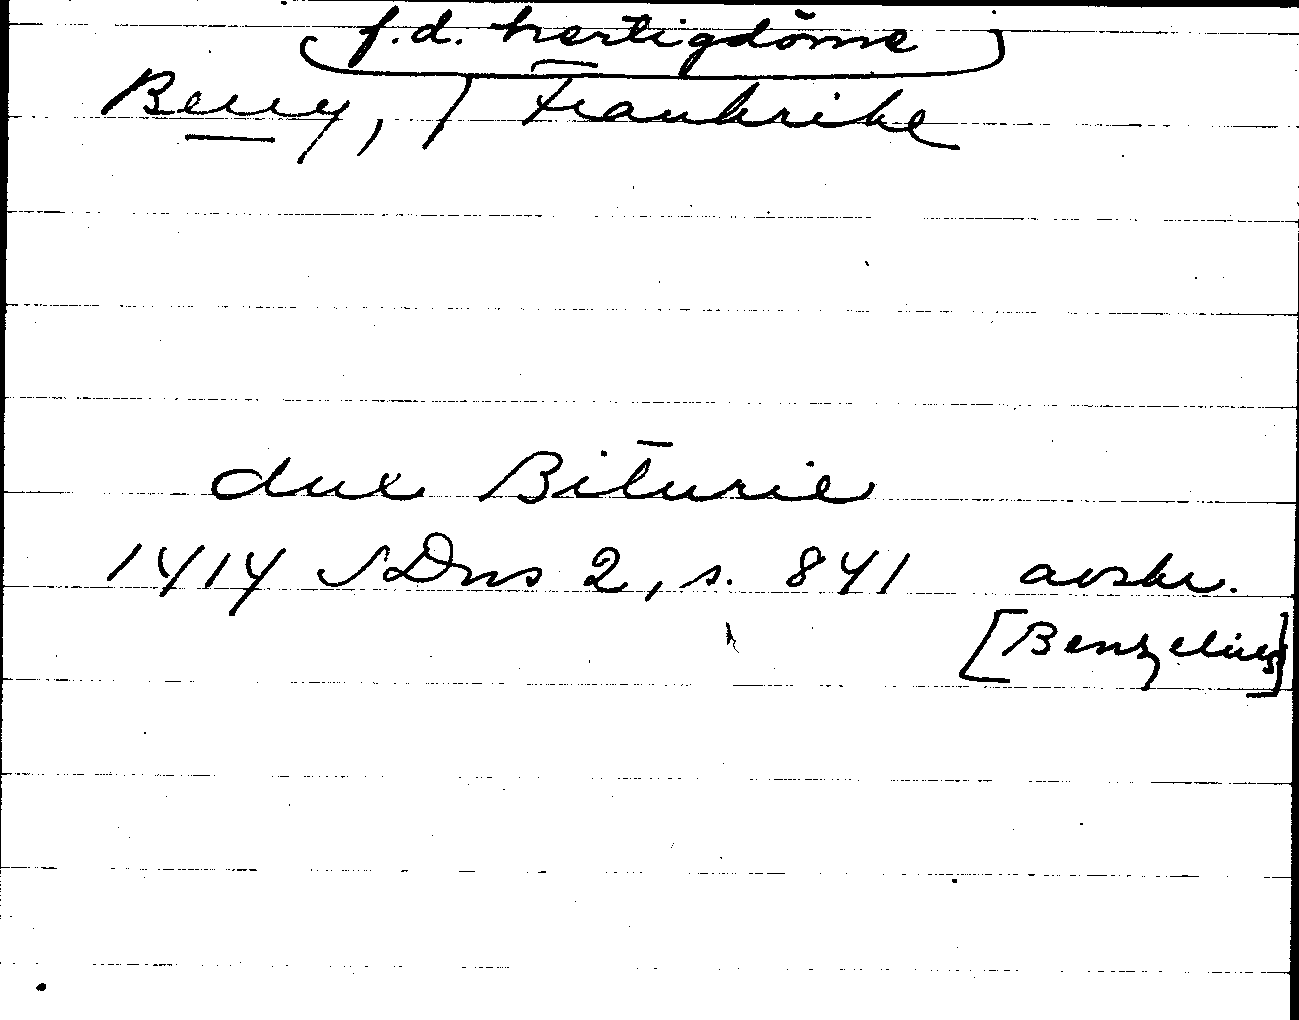 f.d. hertigdöme
Berry, / Frankrike
dux Biturie
1414 SDns 2, s. 841 avskr.
[Benzelius]